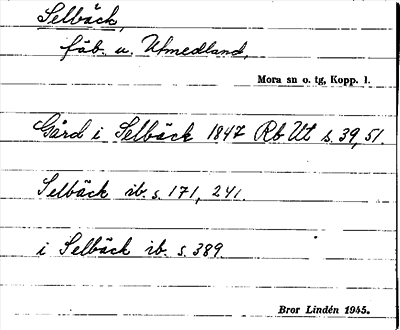 Selbäck,
fäb. u. Utmedland,
Mora sn o. tg, Kopp. l.
Gård i Selbäck 1847 Rb Ut s. 39, 51.
Selbäck ib. s. 171, 241.
i Selbäck ib. s. 389
Bror Lindén 1945.